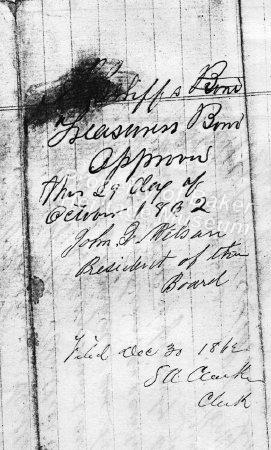 Sheriffs Bond
Treasurers Bond
Approved
this 29 day of
October 1862
John G. Wilson
President of the
Board
Filed Dec 30 1862
S A Clarke
Clerk